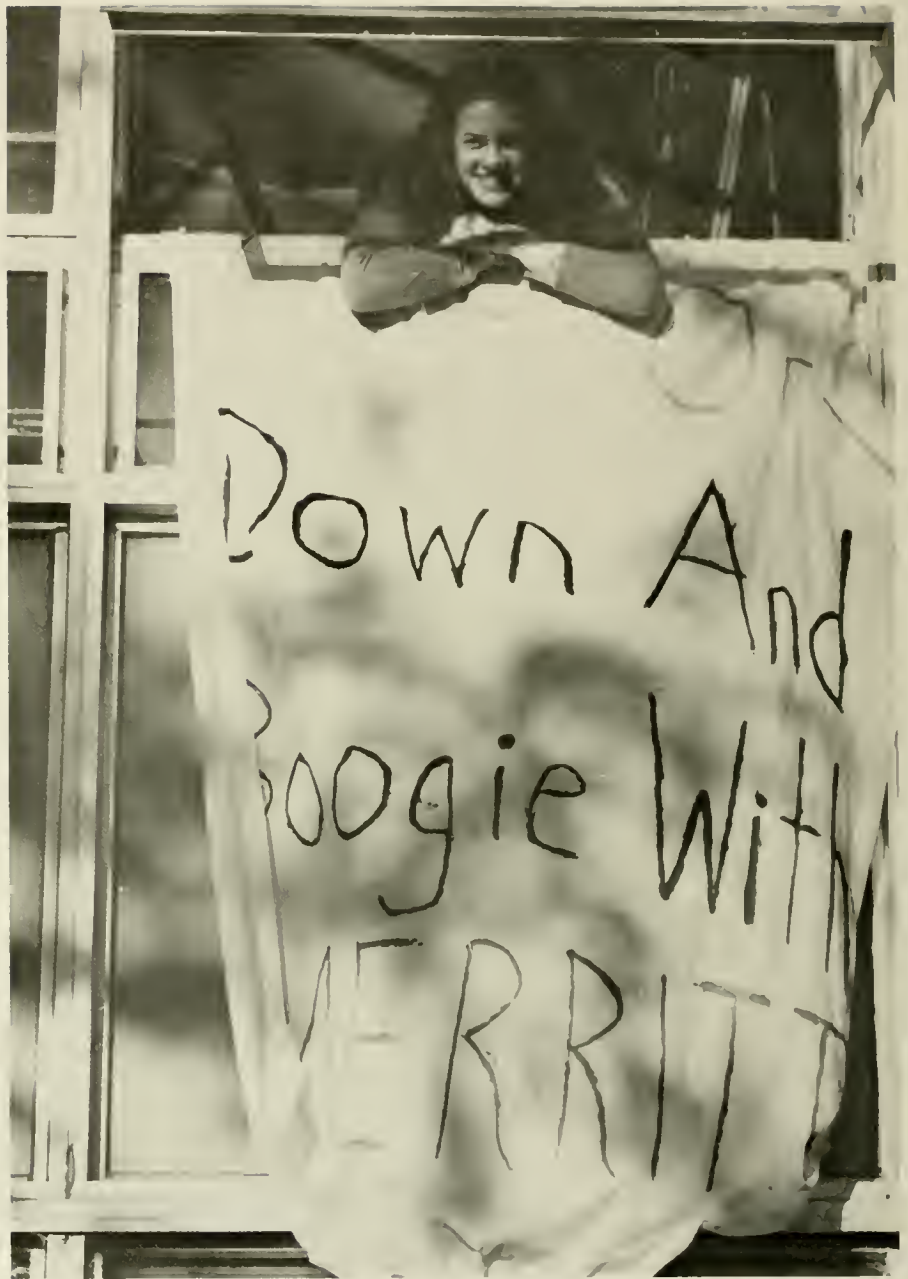 Down And
Boogie With
MERRITT